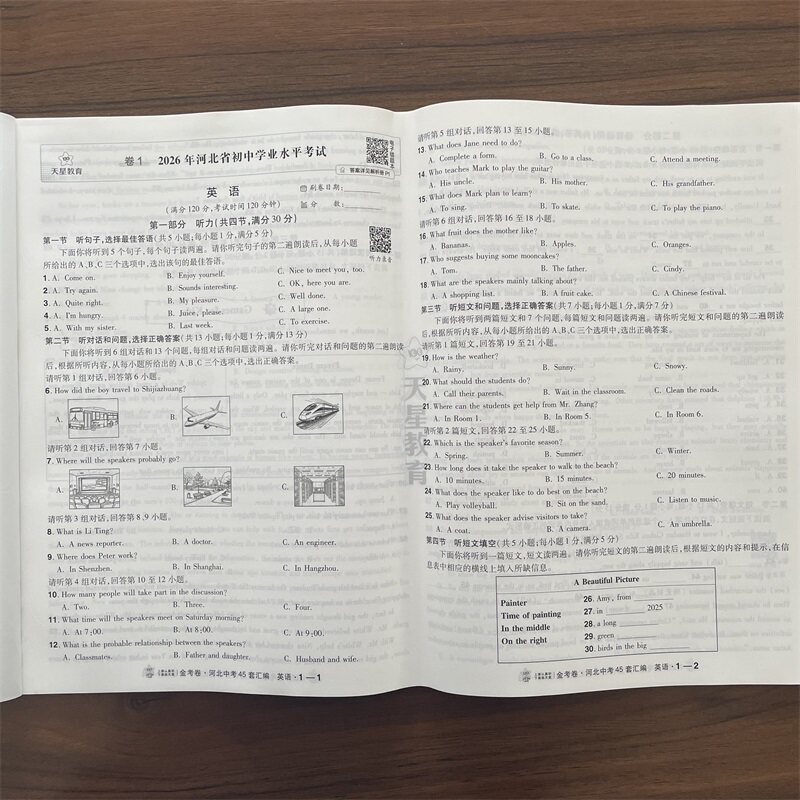 天星教育
卷1 2026年河北省初中学业水平考试
答案详见解析册P1
英语
(满分120分,考试时间120分钟)
刷卷日期:
分 数:
第一部分 听力(共四节,满分30分)
第一节 听句子,选择最佳答语(共5小题;每小题1分,满分5分)
下面你将听到5个句子,每个句子读两遍。请你听完句子的第二遍朗读后,从每小题
所给出的A、B、C三个选项中,选出该句的最佳答语。
听力录音
1. A. Come on. B. Enjoy yourself. C. Nice to meet you, too.
2. A. Try again. B. Sounds interesting. C. OK, here you are.
3. A. Quite right. B. My pleasure. C. Well done.
4. A. I'm hungry. B. Juice, please. C. A large one.
5. A. With my sister. B. Last week. C. To exercise.
第二节 听对话和问题,选择正确答案(共13小题;每小题1分,满分13分)
下面你将听到6组对话和13个问题,每组对话和问题读两遍。请你听完对话和问题的第二遍朗读
后,根据所听内容,从每小题所给出的A、B、C三个选项中,选出正确答案。
请听第1组对话,回答第6小题。
6. How did the boy travel to Shijiazhuang?
A. B. C.
请听第2组对话,回答第7小题。
7. Where will the speakers probably go?
A. B. C.
请听第3组对话,回答第8、9小题。
8. What is Li Ting?
A. A news reporter. B. A doctor. C. An engineer.
9. Where does Peter work?
A. In Shenzhen. B. In Shanghai. C. In Hangzhou.
请听第4组对话,回答第10至12小题。
10. How many people will take part in the discussion?
A. Two. B. Three. C. Four.
11. What time will the speakers meet on Saturday morning?
A. At 7:00. B. At 8:00. C. At 9:00.
12. What is the probable relationship between the speakers?
A. Classmates. B. Father and daughter. C. Husband and wife.
金考卷·河北中考45套汇编 英语·1—1
请听第5组对话,回答第13至15小题。
13. What does Jane need to do?
A. Complete a form. B. Go to a class. C. Attend a meeting.
14. Who teaches Mark to play the guitar?
A. His uncle. B. His mother. C. His grandfather.
15. What does Mark plan to learn?
A. To sing. B. To skate. C. To play the piano.
请听第6组对话,回答第16至18小题。
16. What fruit does the mother like?
A. Bananas. B. Apples. C. Oranges.
17. Who suggests buying some mooncakes?
A. Tom. B. The father. C. Cindy.
18. What are the speakers mainly talking about?
A. A shopping list. B. A fruit cake. C. A Chinese festival.
第三节 听短文和问题,选择正确答案(共7小题;每小题1分,满分7分)
下面你将听到两篇短文和7个问题,每篇短文和问题读两遍。请你听完短文和问题的第二遍朗读
后,根据所听内容,从每小题所给出的A、B、C三个选项中,选出正确答案。
请听第1篇短文,回答第19至21小题。
19. How is the weather?
A. Rainy. B. Sunny. C. Snowy.
20. What should the students do?
A. Call their parents. B. Wait in the classroom. C. Clean the roads.
21. Where can the students get help from Mr. Zhang?
A. In Room 1. B. In Room 5. C. In Room 6.
请听第2篇短文,回答第22至25小题。
22. Which is the speaker's favorite season?
A. Spring. B. Summer. C. Winter.
23. How long does it take the speaker to walk to the beach?
A. 10 minutes. B. 15 minutes. C. 20 minutes.
24. What does the speaker like to do best on the beach?
A. Play volleyball. B. Sit on the sand. C. Listen to music.
25. What does the speaker advise visitors to take?
A. A coat. B. A camera. C. An umbrella.
第四节 听短文填空(共5小题;每小题1分,满分5分)
下面你将听到一篇短文,短文读两遍。请你听完短文的第二遍朗读后,根据短文的内容和提示,在信
息表中相应的横线上填入所缺信息。
A Beautiful Picture
Painter 26. Amy, from
Time of painting 27. in 2025
In the middle 28. a long
On the right 29. green
30. birds in the big
金考卷·河北中考45套汇编 英语·1—2
天星教育